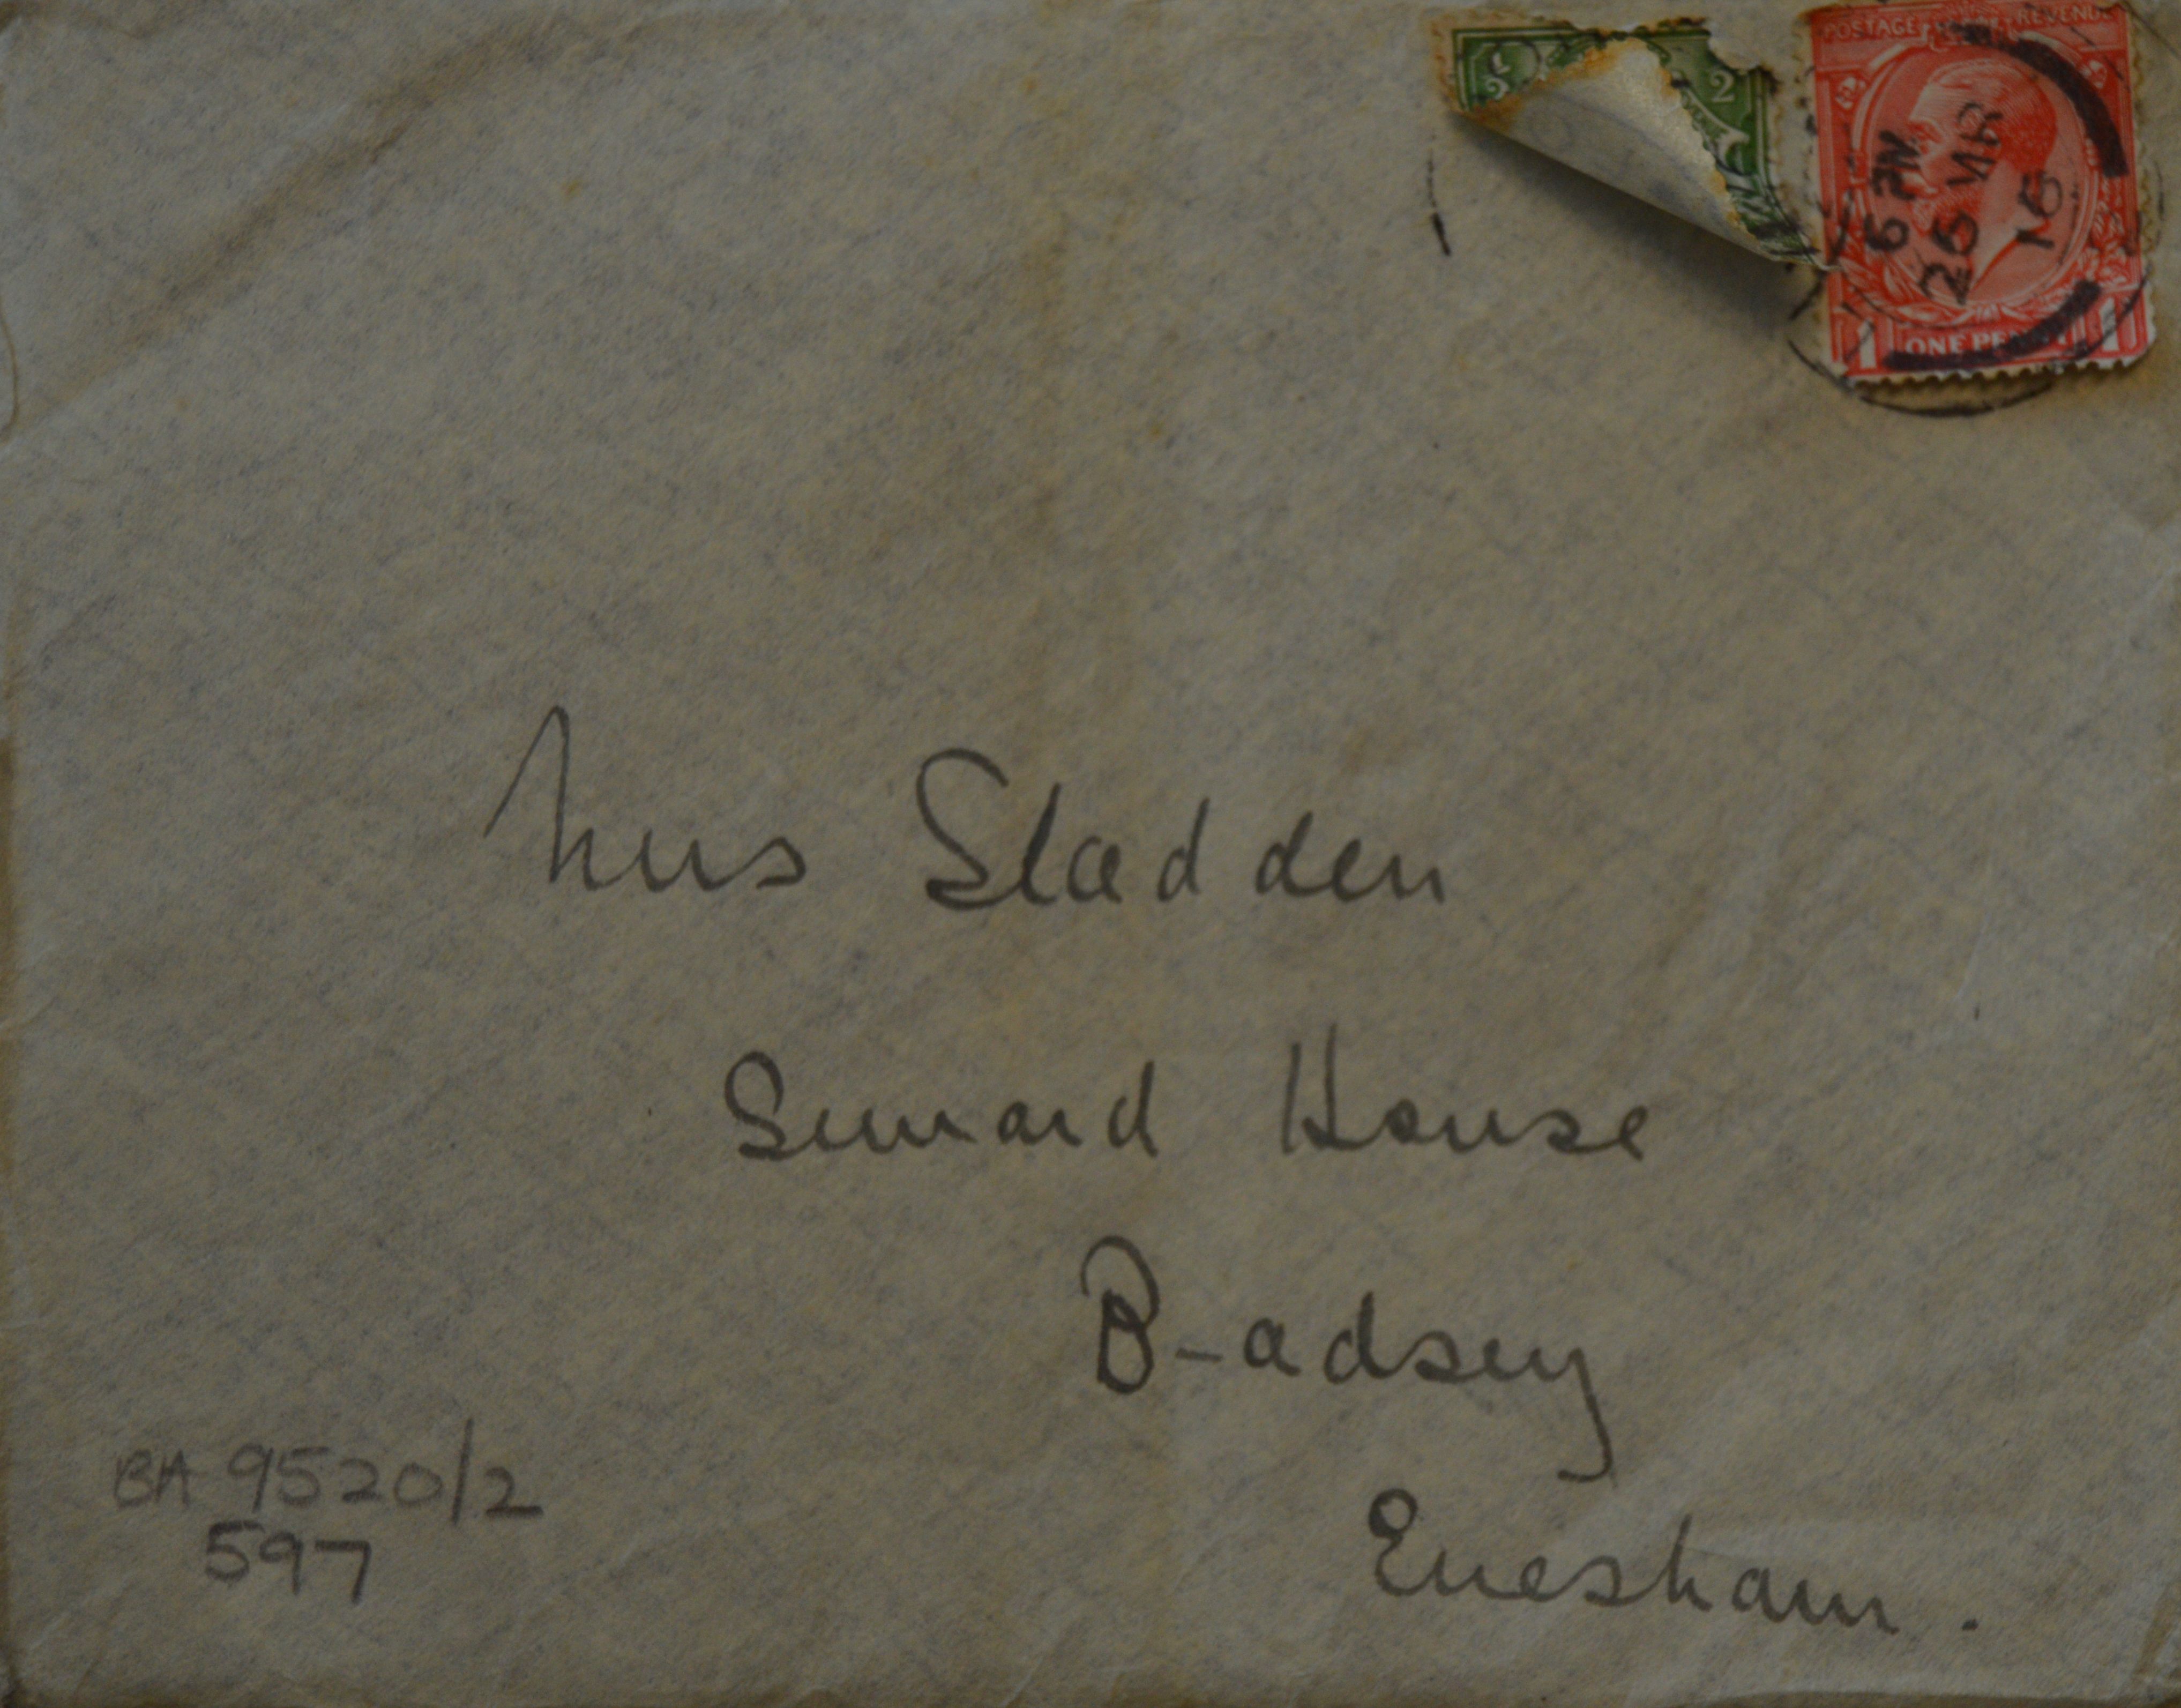 POSTAGE REVENUE
2
6 PM
26 MR
16
1 ONE PENNY 1
Mrs Sladden
Seward House
Badsey
Evesham.
BA 9520/2
597